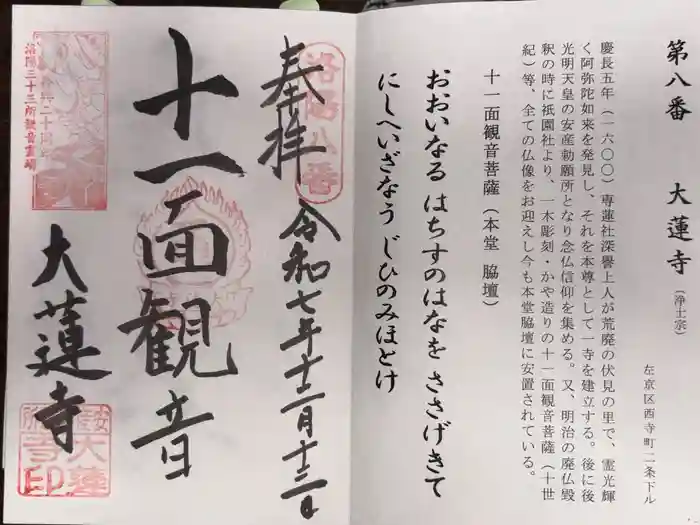 第八番　大蓮寺（浄土宗）
左京区西寺町二条下ル
慶長五年（一六〇〇）専蓮社深誉上人が荒廃の伏見の里で、霊光輝
く阿弥陀如来を発見し、それを本尊として一寺を建立する。後に後
光明天皇の安産勅願所となり念仏信仰を集める。又、明治の廃仏毀
釈の時に祇園社より、一木彫刻・かや造りの十一面観音菩薩（十世
紀）等、全ての仏像をお迎えし今も本堂脇壇に安置されている。
十一面観音菩薩（本堂　脇壇）
おおいなる はちすのはなを ささげきて
にしへいざなう じひのみほとけ
洛陽八番
奉拝
令和七年十二月十三日
十一面観音
大蓮寺
洛陽三十三所観音霊場
大蓮
寺印